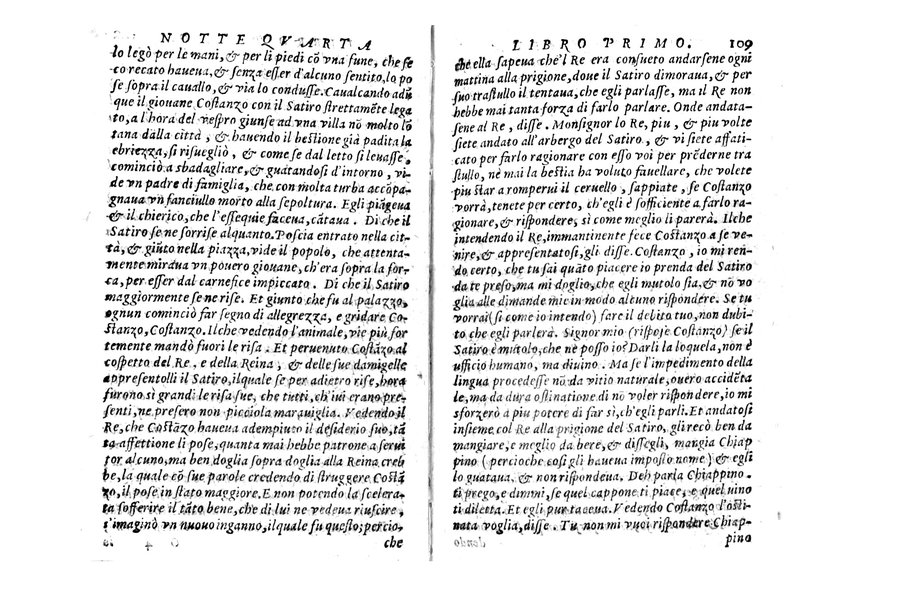 NOTTE QVARTA
lo legò per le mani, & per li piedi cõ vna fune, che fe
co recato haueua, & senza esser d'alcuno sentito, lo po
se sopra il cauallo, & via lo condusse. Caualcando adũ
que il giouane Costanzo con il Satiro strettamẽte lega
to, a l'hora del vespro giunse ad vna villa nõ molto lõ
tana dalla città, & hauendo il bestione già padita la
ebriezza, si risueglìò, & come se dal letto si leuasse,
cominciò a sbadagliare, & guatandosi d'intorno, vi-
de vn padre di famiglia, che con molta turba accõpa-
gnaua vn fanciullo morto alla sepoltura. Egli piãgeua
& il chierico, che l'essequie faceua, cãtaua. Di che il
Satiro se ne sorrise alquanto. Poscia entrato nella cit-
tà, & giũto nella piazza, vide il popolo, che attenta-
mente miraua vn pouero giouane, ch'era sopra la for-
ca, per esser dal carnefice impiccato. Di che il Satiro
maggiormente se ne rise. Et giunto che fu al palazzo,
ognun cominciò far segno di allegrezza, e gridare Co-
stanzo, Costanzo. Ilche vedendo l'animale, vie più for
temente mandò fuori le risa. Et peruenuto Costãzo al
cospetto del Re, e della Reina, & delle sue damigelle
appresentolli il Satiro, ilquale se per adietro rise, hora
furono sì grandi le risa sue, che tutti, ch'iui erano pre-
senti, ne presero non picciola marauiglia. Vedendo il
Re, che Costãzo haueua adempiuto il desiderio suo, tã
ta affettione li pose, quanta mai hebbe patrone a serui
tor alcuno, ma ben doglia sopra doglia alla Reina creb
be, la quale cõ sue parole credendo di struggere Costã
zo, il pose in stato maggiore. E non potendo la scelera-
ta sofferire il tãto bene, che di lui ne vedeua riuscire,
s'imaginò vn nuouo inganno, ilquale fu questo; percio
che
LIBRO PRIMO. 109
che ella sapeua che'l Re era consueto andarsene ogni
mattina alla prigione, doue il Satiro dimoraua, & per
suo trastullo il tentaua, che egli parlasse, ma il Re non
hebbe mai tanta forza di farlo parlare. Onde andata-
sene al Re, disse. Monsignor lo Re, piu, & piu volte
siete andato all'arbergo del Satiro, & vi siete affati-
cato per farlo ragionare con esso voi per prẽderne tra
stullo, nè mai la bestia ha voluto fauellare, che volete
piu star a romperui il ceruello, sappiate, se Costanzo
vorrà, tenete per certo, ch'egli è sofficiente a farlo ra-
gionare, & rispondere, sì come meglio li parerà. Ilche
intendendo il Re, immantinente fece Costanzo a se ve-
nire, & appresentatosi, gli disse. Costanzo, io mi ren-
do certo, che tu sai quãto piacere io prenda del Satiro
da te preso, ma mi doglio, che egli mutolo sia, & nõ vo
glia alle dimande mie in modo alcuno rispondere. Se tu
vorrai (sì come io intendo) fare il debito tuo, non dubi-
to che egli parlerà. Signor mio (rispose Costanzo) se il
Satiro è mutolo, che nè posso io? Darli la loquela, non è
ufficio humano, ma diuino. Ma se l'impedimento della
lingua procedesse nõ da vitio naturale, ouero accidẽta
le, ma da dura ostinatione di nõ voler rispondere, io mi
sforzerò a piu potere di far sì, ch'egli parli. Et andatosi
insieme col Re alla prigione del Satiro, gli recò ben da
mangiare, e meglio da bere, & dissegli, mangia Chiap
pino (percioche così gli haueua imposto nome) & egli
lo guataua, & non rispondeua. Deh parla Chiappino.
ti prego, e dimmi, se quel cappone ti piace, e quel uino
ti diletta. Et egli pur taceua. Vedendo Costanzo l'osti-
nata voglia, disse. Tu non mi vuoi rispondere Chiap-
pino